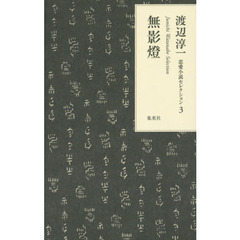 渡辺淳一
恋愛小説セレクション 3
Junichi Watanabe Selection
無影燈
集英社